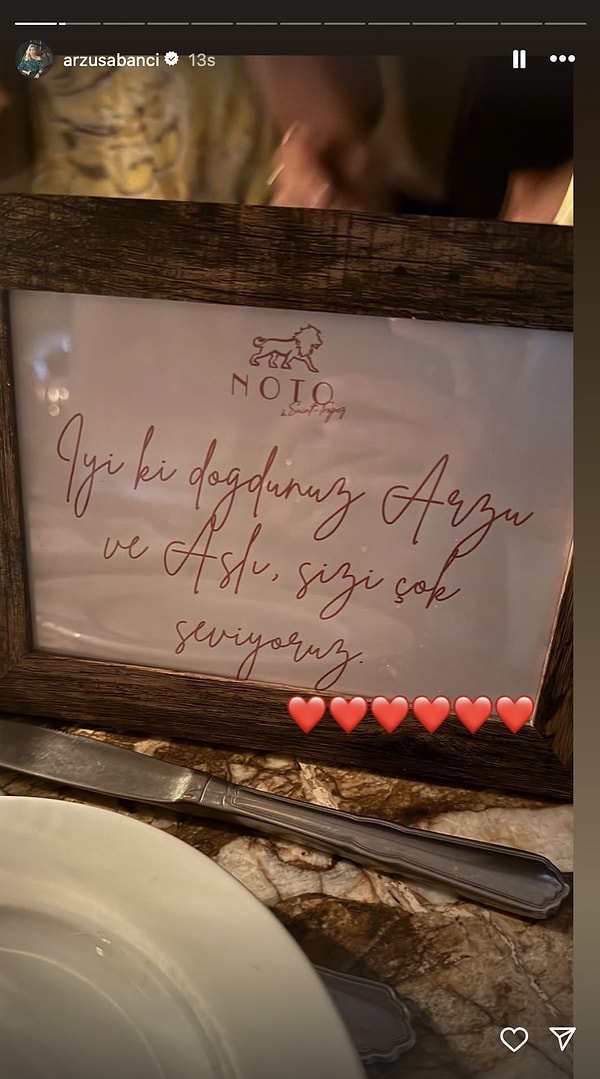 arzusabanci 13s
NOTO
Saint-Tropez
İyi ki doğdunuz Arzu
ve Aslı, sizi çok
seviyoruz.
❤️❤️❤️❤️❤️❤️